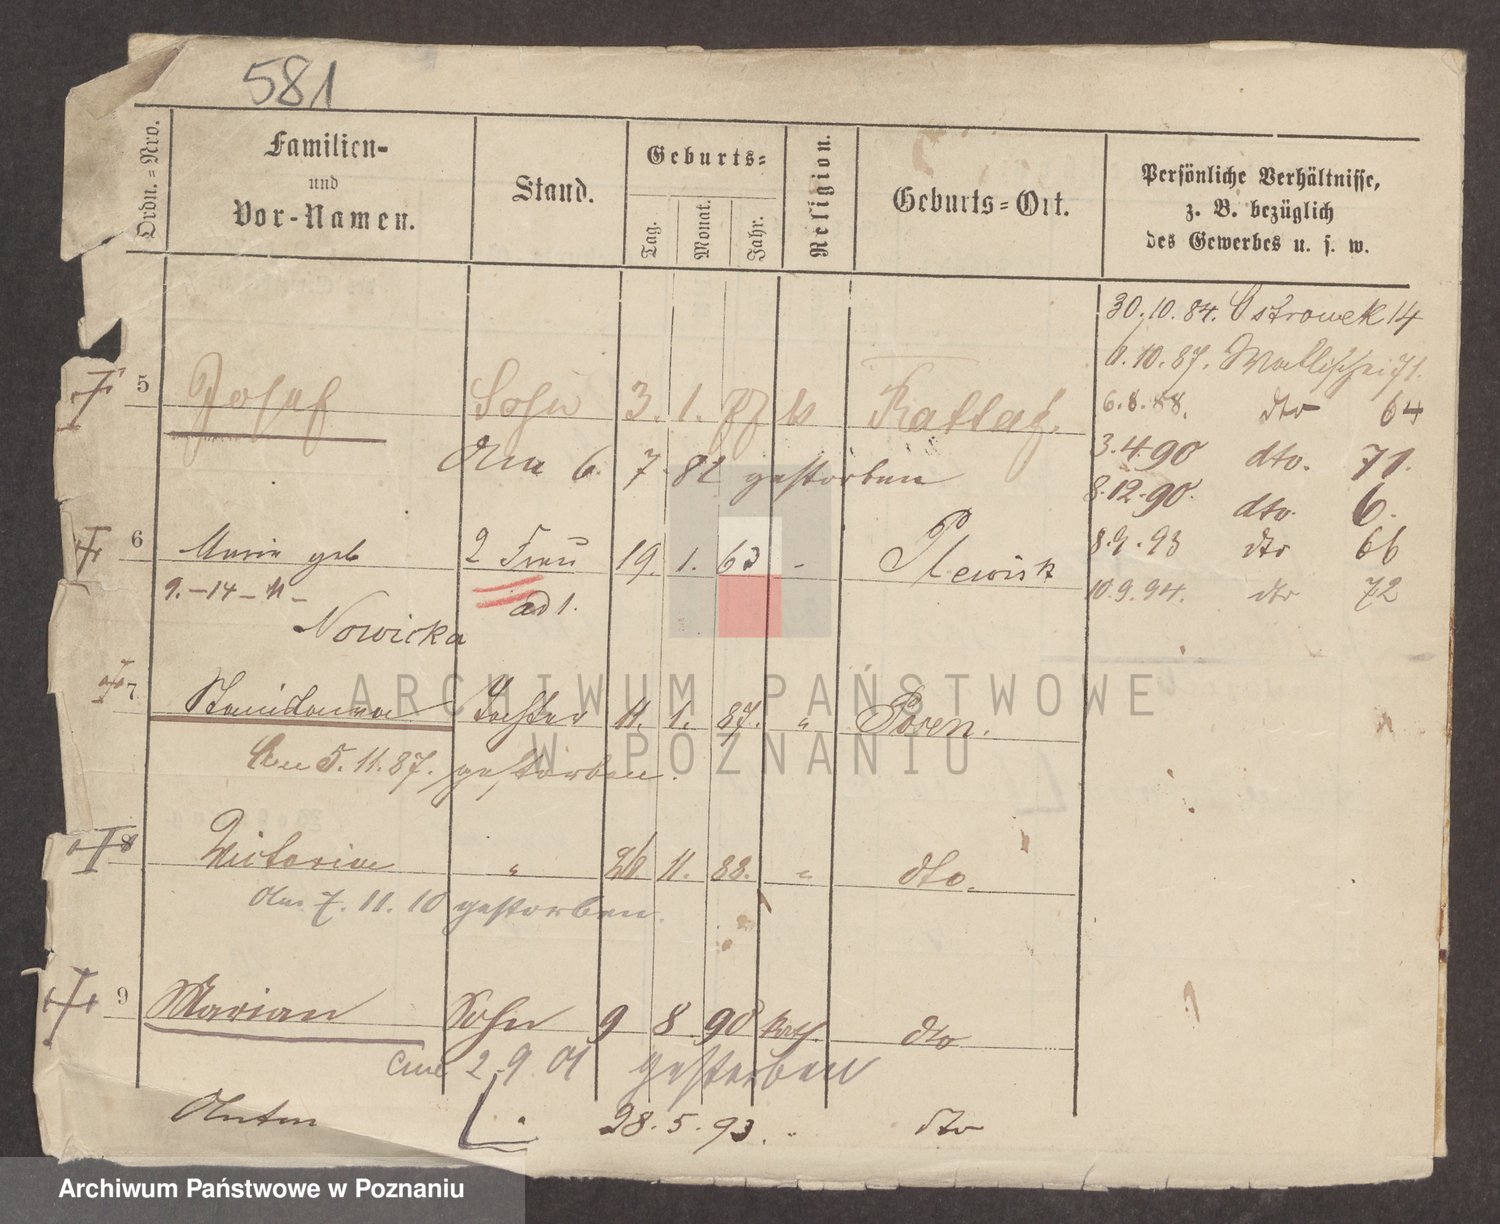 581
Ordn.=Nro.
Familien-
und
Vor-Namen.
Stand.
Geburts=
Tag.
Monat.
Jahr.
Religion.
Geburts=Ort.
Persönliche Verhältnisse,
z. B. bezüglich
des Gewerbes u. s. w.
30.10.84. Ostrowek 14
6.10.87. Wallischei 71.
6.8.88. dto 64
3.4.90 dto. 71.
8.12.90. dto. 6.
8.9.93 dto 66
10.9.94. dto 72
5 Josef Sohn 3. 1. k
Am 6. 7. 82 gestorben
6 Marie geb 2 Frau 19. 1. 63 - Plewisk
9.-14-11-
ad 1.
Nowicka
7 Stanislawa Tochter 11. 1. 87. " Posen.
Am 5.11.87. gestorben.
8 Victoria " 26 11. 88. " dto.
Am 7. 11. 10 gestorben.
9 Marian Sohn 9 8 90 kath. dto
am 2.9.01 gestorben
Anton " 28. 5. 93. " dto
ARCHIWUM PAŃSTWOWE
W POZNANIU
Archiwum Państwowe w Poznaniu